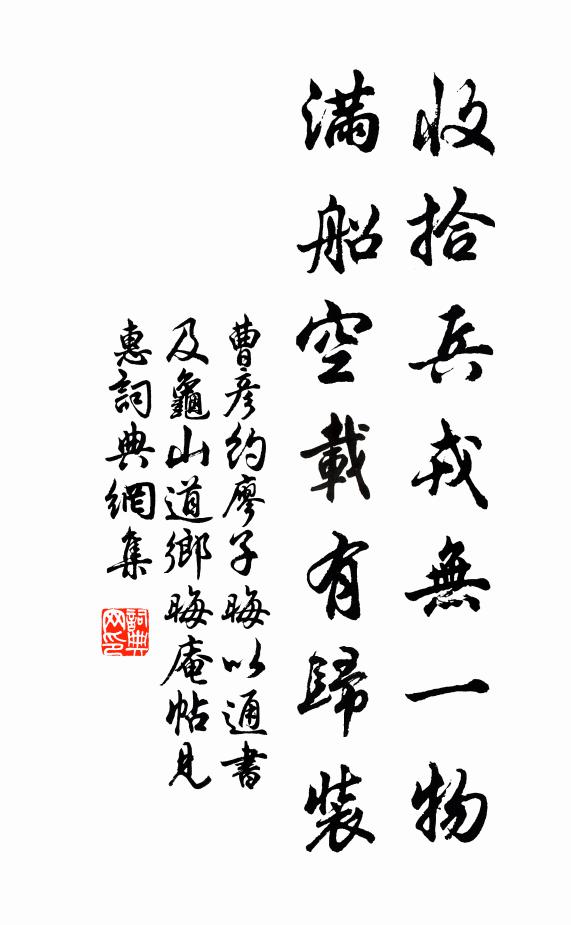 收拾兵戎無一物
滿船空載有歸裝
曹彥約廖子晦以通書
及龜山道鄉晦庵帖見
惠詞典網集
詞典
网印